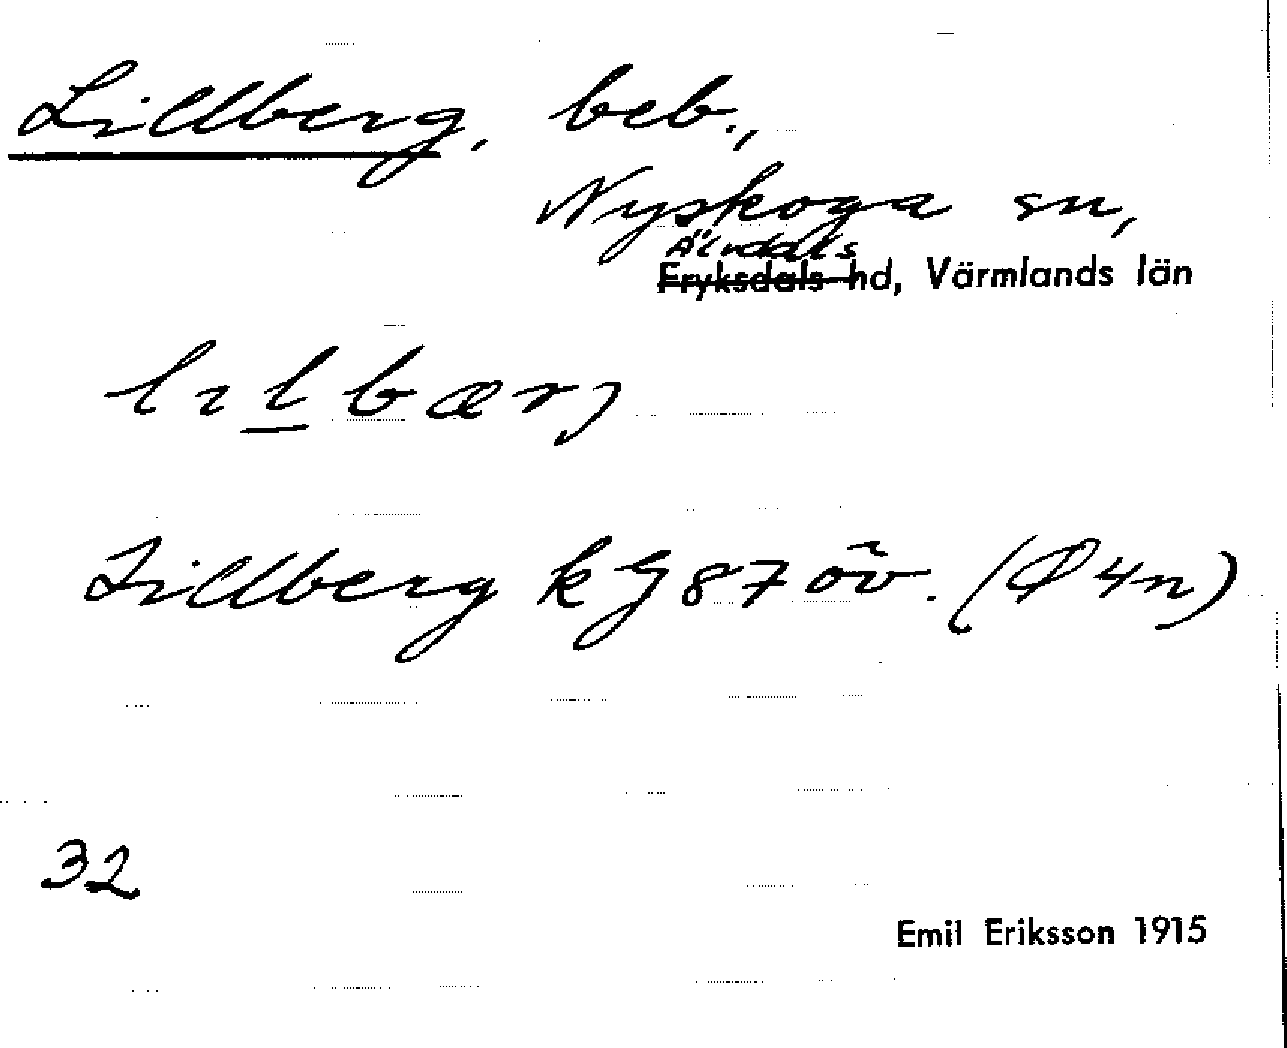 Lillberg, beb.,
Nyskoga sn,
Älvdals
Fryksdals hd, Värmlands län
lılbærj
Lillberg kG 87 öv. (Ø 4n)
32
Emil Eriksson 1915